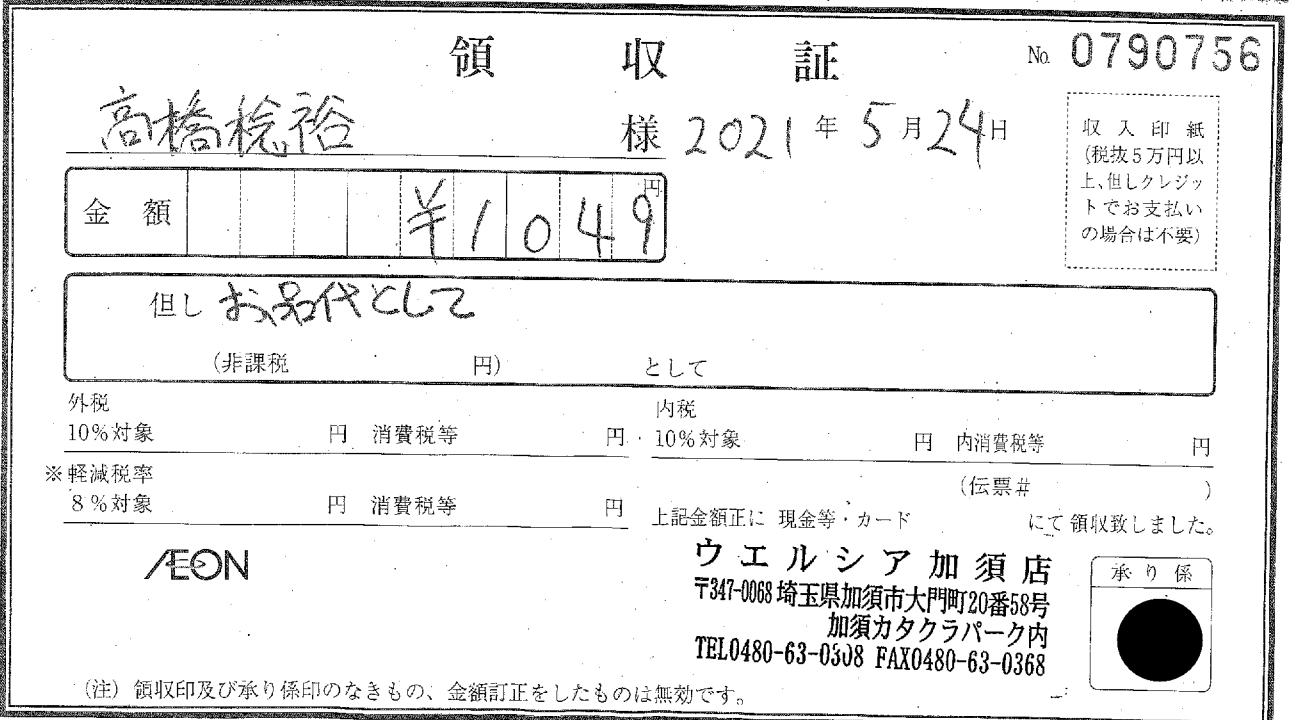 領収証
No. 0790756
高橋稔裕 様 2021年5月24日
収入印紙
(税抜5万円以
上、但しクレジッ
トでお支払い
の場合は不要)
金額 ¥1049円
但し お品代として
(非課税 円) として
外税
10%対象 円 消費税等 円
内税
10%対象 円 内消費税等 円
※軽減税率
8%対象 円 消費税等 円
(伝票# )
上記金額正に 現金等・カード にて領収致しました。
ÆON
ウエルシア加須店
〒347-0068 埼玉県加須市大門町20番58号
加須カタクラパーク内
TEL0480-63-0308 FAX0480-63-0368
承り係
(注) 領収印及び承り係印のなきもの、金額訂正をしたものは無効です。